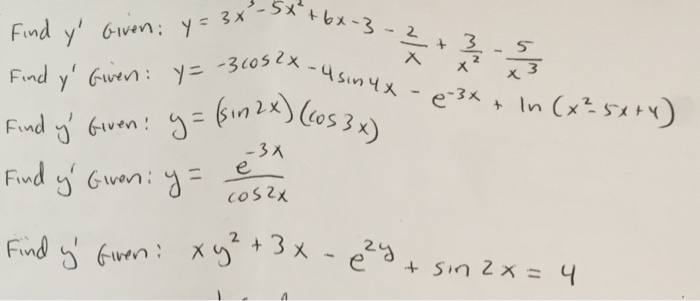 Find y' Given: y = 3x³ - 5x² + 6x - 3 - 2/x + 3/x² - 5/x³
Find y' Given: y = -3cos2x - 4sin4x - e^-3x + ln (x² - 5x + 4)
Find y' Given: y = (sin2x)(cos3x)
Find y' Given: y = e^-3x/cos2x
Find y' Given: xy² + 3x - e^2y + sin2x = 4